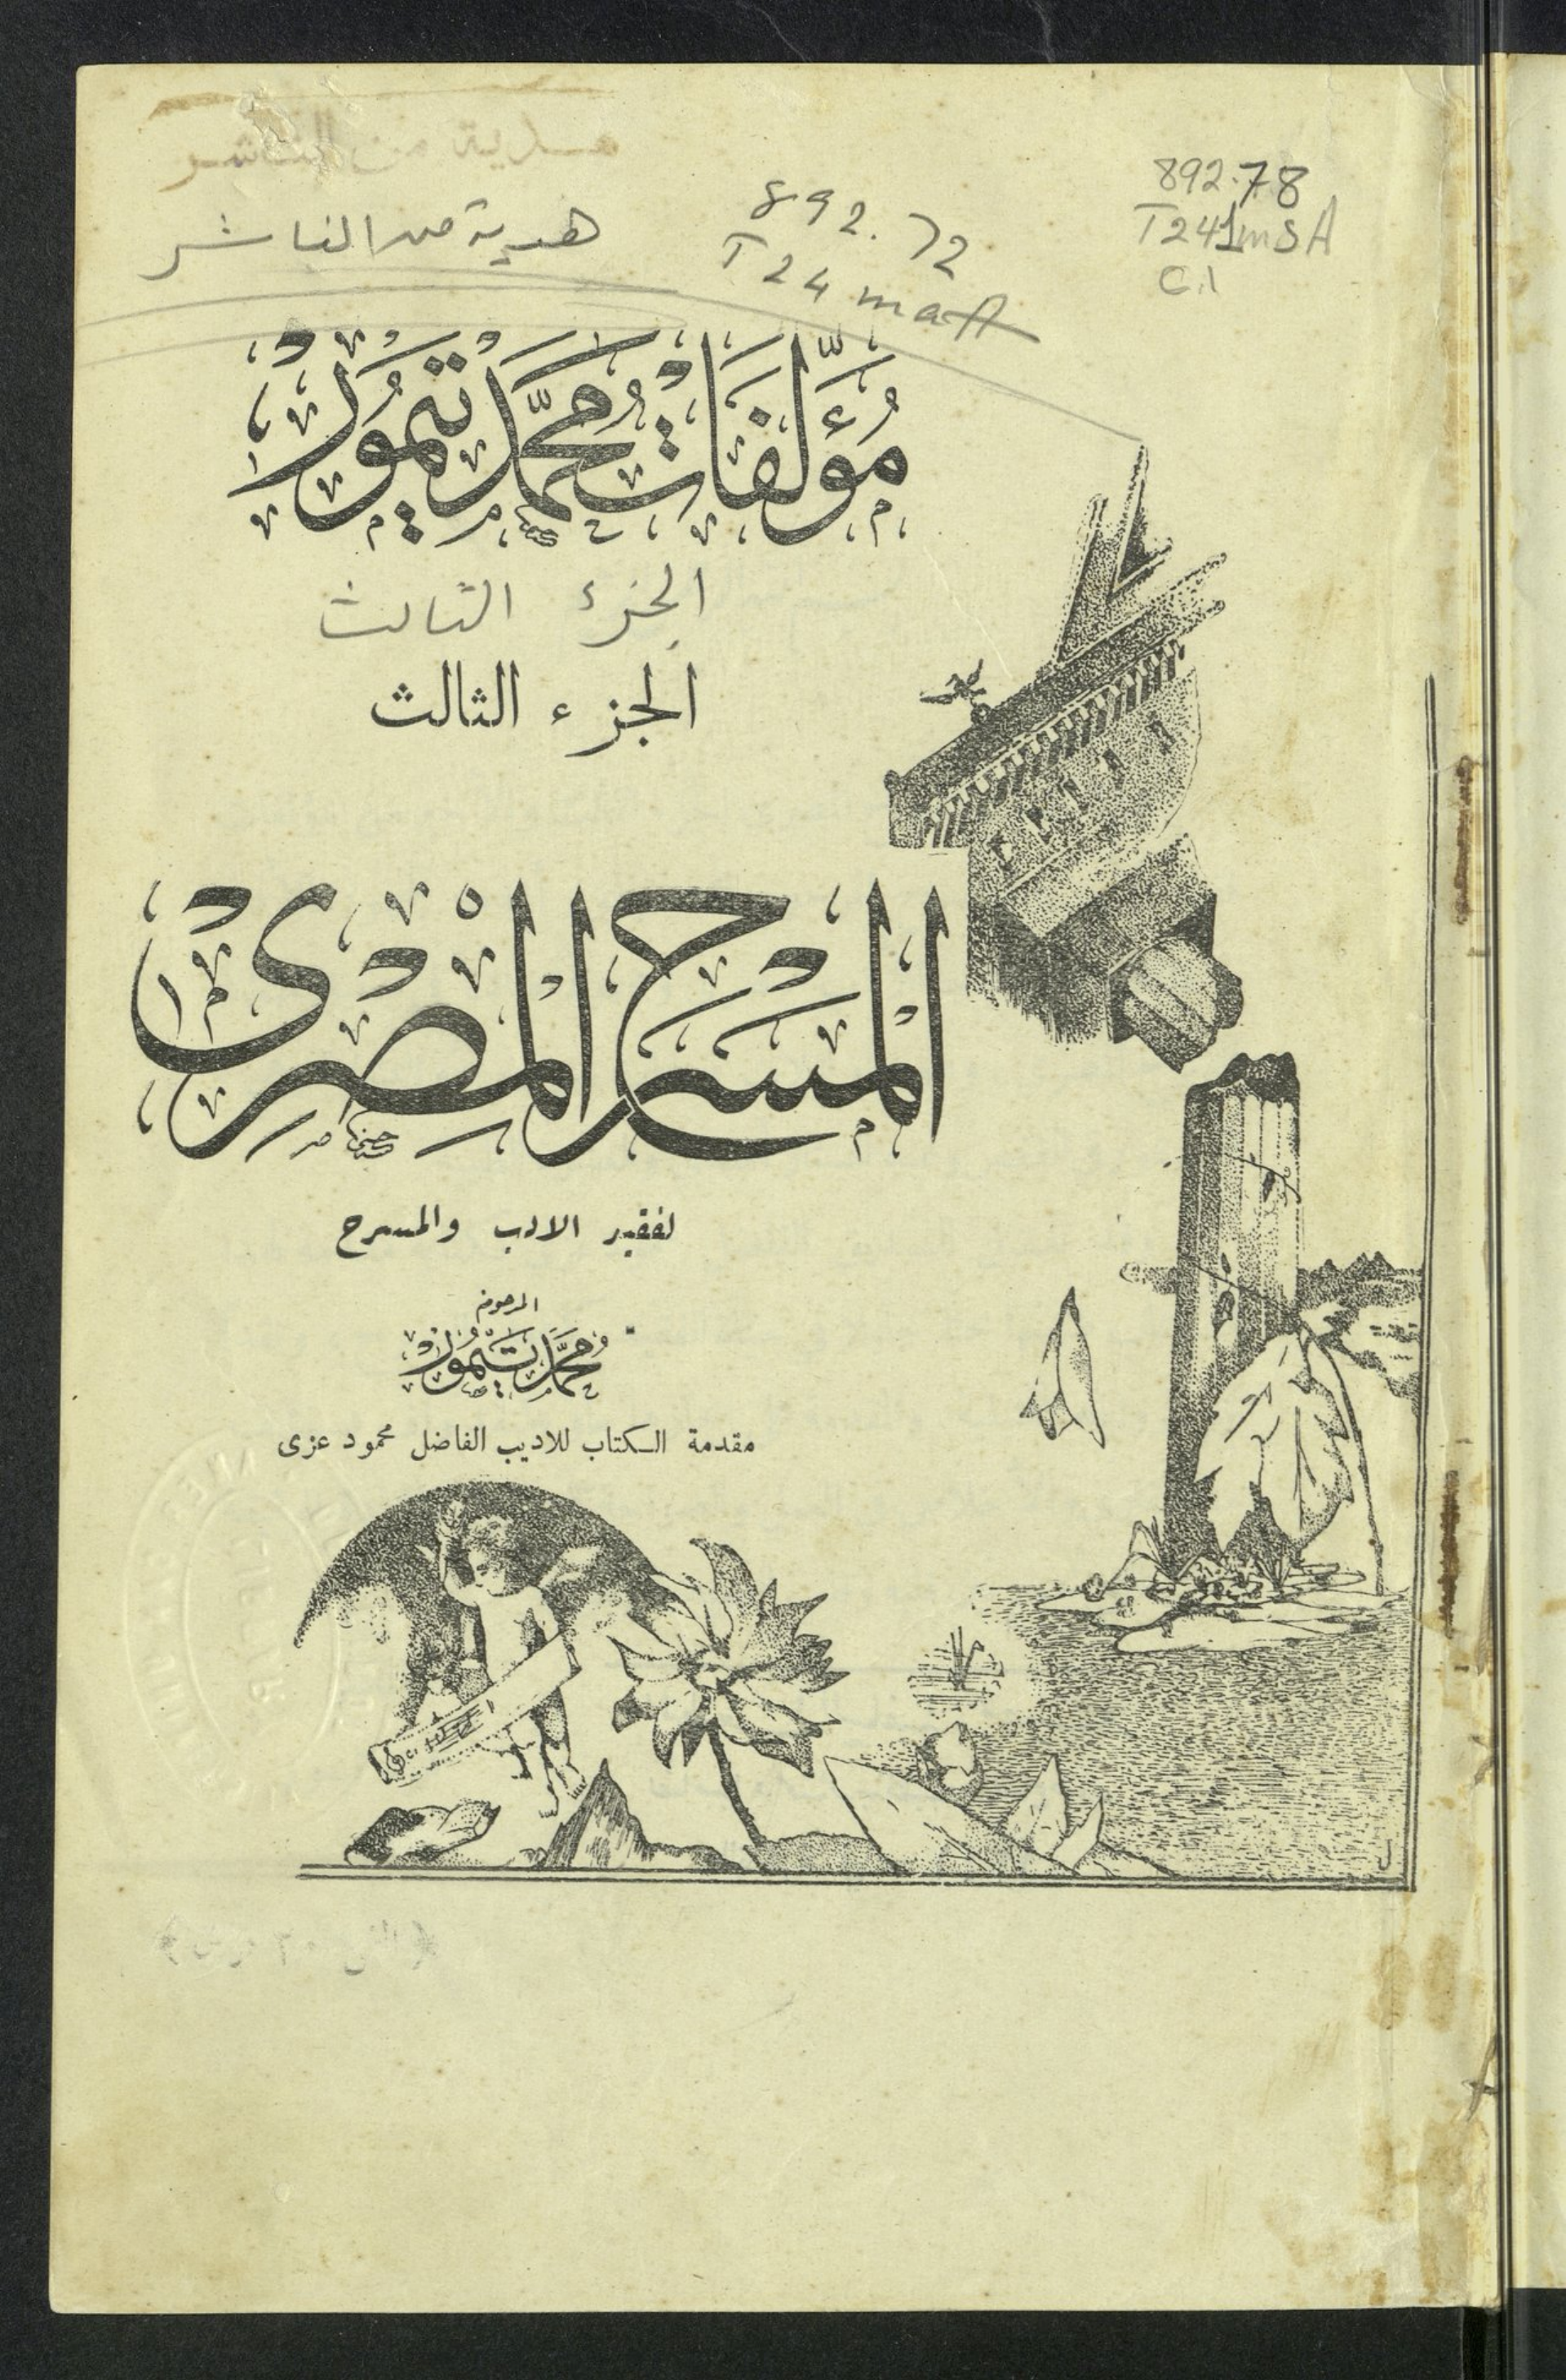 هدية من الناشر
هدية من الناشر
892.72
T24maA
892.78
T241mSA
C.1
مُؤَلَّفَات مُحَمَّد تَيْمُور
الجزء الثالث
الجزء الثالث
المَسْرَح المِصْرِى
لفقيد الادب والمسرح
المرحوم
مُحَمَّد تَيْمُور
مقدمة الكتاب للاديب الفاضل محمود عزى